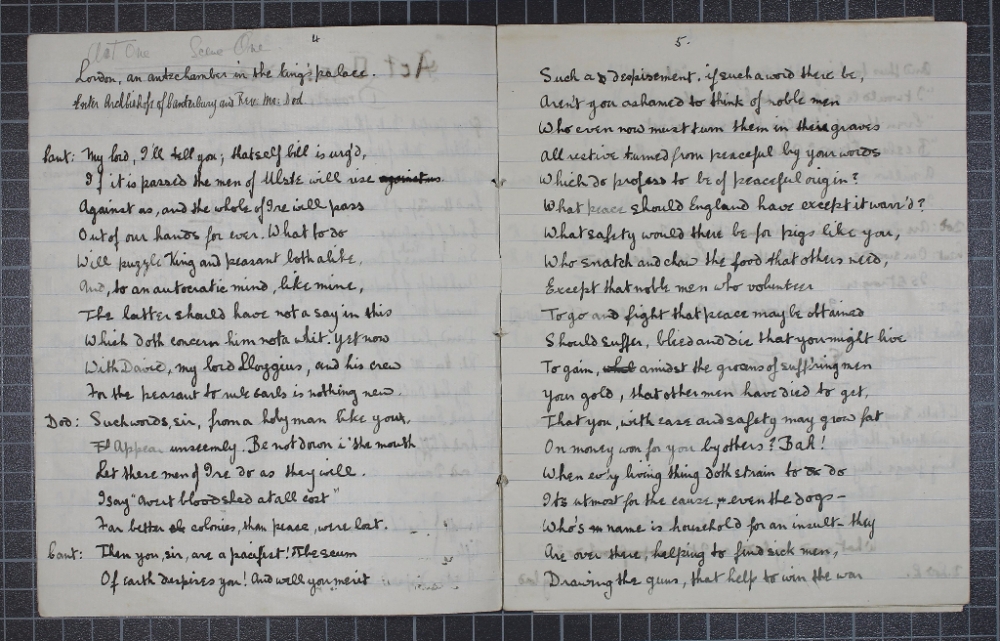 4
Act One Scene One
London, an antechamber in the King's palace.
Enter Archbishop of Canterbury and Rev. Mr. Dod
Cant: My lord, I'll tell you; that self bill is urg'd,
If it is passed the men of Ulste will rise against us
Against us, and the whole of Ire will pass
Out of our hands for ever. What to do
Will puzzle King and peasant both alike,
And, to an autocratic mind, like mine,
The latter should have not a say in this
Which doth concern him not a whit. Yet now
With David, my lord Lloyggius, and his crew
For the peasant to rule earls is nothing new.
Dod: Such words, sir, from a holy man like your,
Appear unseemly. Be not down i' the mouth
Let these men of Ire do as they will.
I say "Avert bloodshed at all cost"
Far better colonies, than peace, were lost.
Cant: Then you, sir, are a pacifist! The scum
Of earth despires you! And well you merit
5.
Such a despisement, if such a word there be,
Aren't you ashamed to think of noble men
Who even now must turn them in their graves
All restive turned from peaceful by your words
Which do profess to be of peaceful origin?
What peace should England have except it warr'd?
What safety would there be for pigs like you,
Who snatch and chaw the food that others need,
Except that noble men who volunteer
To go and fight that peace may be obtained
Should suffer, bleed and die that you might live
To gain, amidst the groans of suff'ring men
Your gold, that other men have died to get,
That you, with ease and safety may grow fat
On money won for you by others? Bah!
When ev'ry living thing doth strain to do
Its utmost for the cause, even the dogs —
Who's name is household for an insult they
Are over there, helping to find sick men,
Drawing the guns, that help to win the war